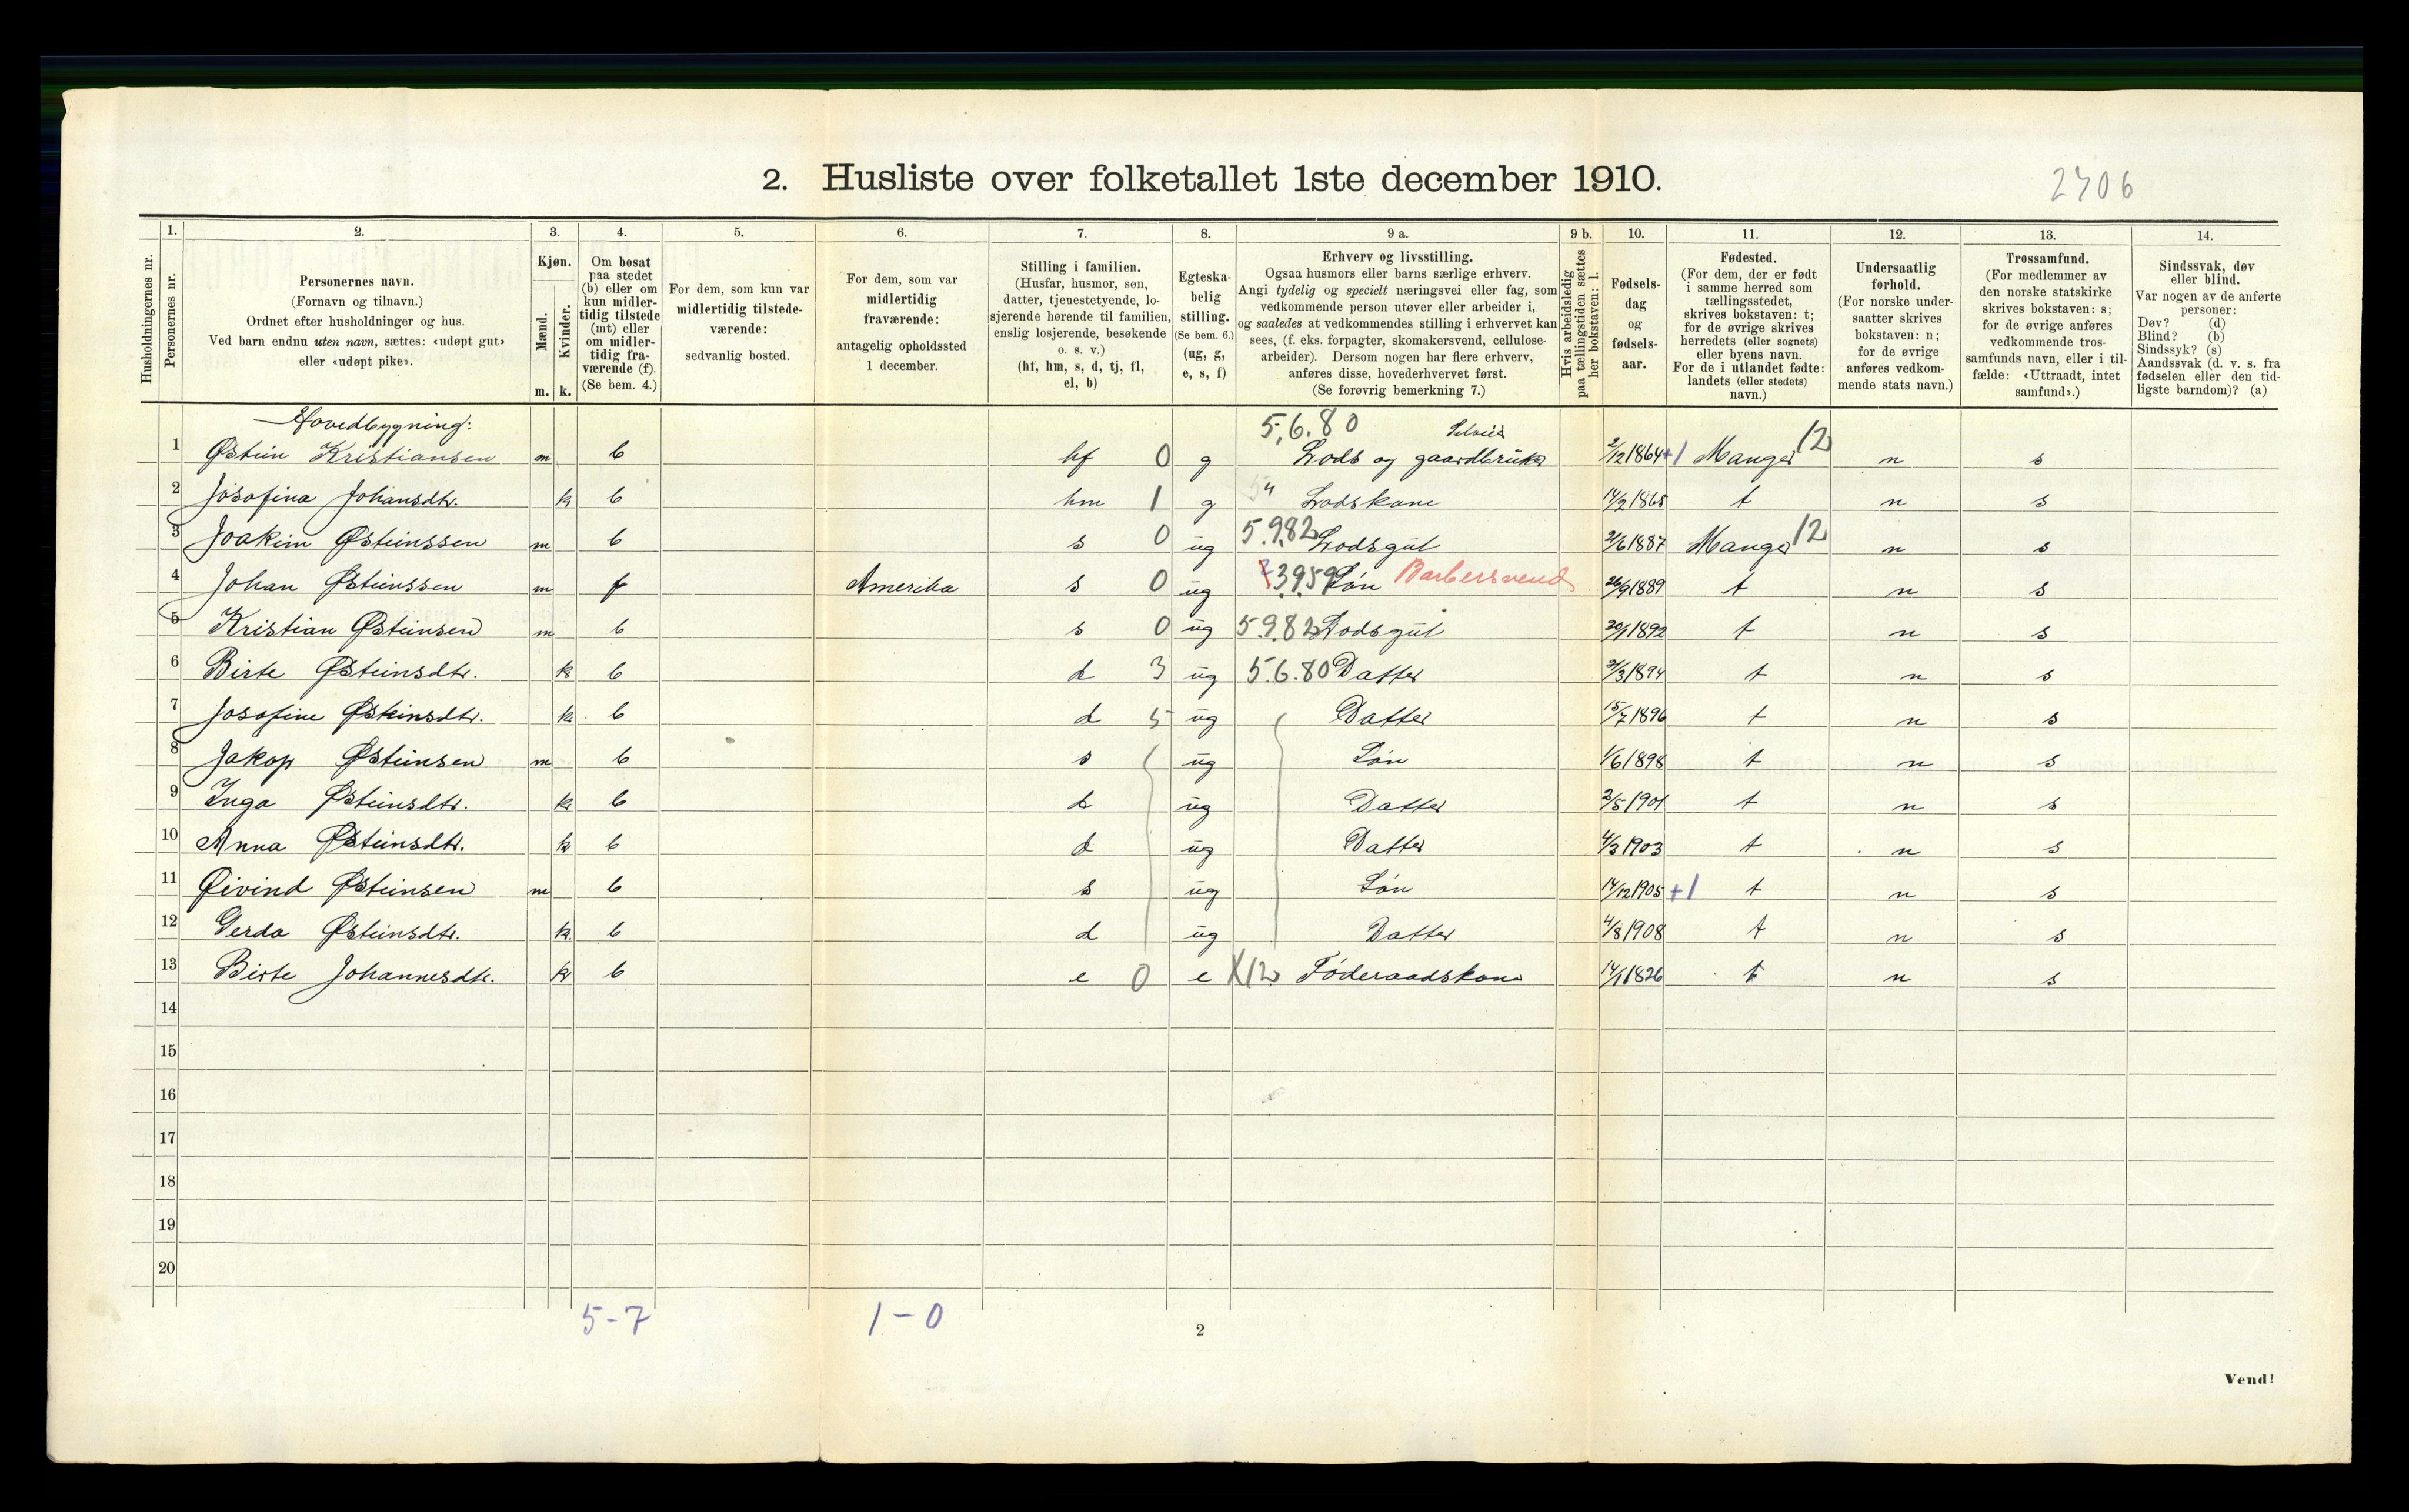 2. Husliste over folketallet 1ste december 1910.
2706
1. 2. 3. 4. 5. 6. 7. 8. 9 a. 9 b. 10. 11. 12. 13. 14.
Husholdningernes nr.
Personernes nr.
Personernes navn.
(Fornavn og tilnavn.)
Ordnet efter husholdninger og hus.
Ved barn endnu uten navn, sættes: «udøpt gut»
eller «udøpt pike».
Kjøn.
Mænd.
Kvinder.
m. k.
Om bosat
paa stedet
(b) eller om
kun midler-
tidig tilstede
(mt) eller
om midler-
tidig fra-
værende (f).
(Se bem. 4.)
For dem, som kun var
midlertidig tilstede-
værende:
sedvanlig bosted.
For dem, som var
midlertidig
fraværende:
antagelig opholdssted
1 december.
Stilling i familien.
(Husfar, husmor, søn,
datter, tjenestetyende, lo-
sjerende hørende til familien,
enslig losjerende, besøkende
o. s. v.)
(hf, hm, s, d, tj, fl,
el, b)
Egteska-
belig
stilling.
(Se bem. 6.)
(ug, g,
e, s, f)
Erhverv og livsstilling.
Ogsaa husmors eller barns særlige erhverv.
Angi tydelig og specielt næringsvei eller fag, som
vedkommende person utøver eller arbeider i,
og saaledes at vedkommendes stilling i erhvervet kan
sees, (f. eks. forpagter, skomakersvend, cellulose-
arbeider). Dersom nogen har flere erhverv,
anføres disse, hovederhvervet først.
(Se forøvrig bemerkning 7.)
Hvis arbeidsledig
paa tællingstiden sættes
her bokstaven: l.
Fødsels-
dag
og
fødsels-
aar.
Fødested.
(For dem, der er født
i samme herred som
tællingsstedet,
skrives bokstaven: t;
for de øvrige skrives
herredets (eller sognets)
eller byens navn.
For de i utlandet fødte:
landets (eller stedets)
navn.)
Undersaatlig
forhold.
(For norske under-
saatter skrives
bokstaven: n;
for de øvrige
anføres vedkom-
mende stats navn.)
Trossamfund.
(For medlemmer av
den norske statskirke
skrives bokstaven: s;
for de øvrige anføres
vedkommende tros-
samfunds navn, eller i til-
fælde: «Uttraadt, intet
samfund».)
Sindssvak, døv
eller blind.
Var nogen av de anførte
personer:
Døv? (d)
Blind? (b)
Sindssyk? (s)
Aandssvak (d. v. s. fra
fødselen eller den tid-
ligste barndom)? (a)
Hovedbygning: 5.6.80
1 Østein Kristiansen m b hf 0 g Lods og gaardbruker 2/12 1864 +1 Manger 12 n s
2 Josofina Johansdtr. k b hm 1 g " Lodskone 14/2 1865 t n s
3 Joakim Østeinssen m b s 0 ug 5.9.82 Lodsgut 2/6 1887 Manger 12 n s
4 Johan Østeinssen m f Amerika s 0 ug 3959 Søn Barbersvend 26/9 1889 t n s
5 Kristian Østeinsen m b s 0 ug 5.9.82 Lodsgut 20/1 1892 t n s
6 Birte Østeinsdtr. k b d 3 ug 5.6.80 Datter 2/3 1894 t n s
7 Josofine Østeinsdtr. k b d 5 ug Datter 15/7 1896 t n s
8 Jakop Østeinsen m b s ug Søn 1/6 1898 t n s
9 Inga Østeinsdtr. k b d ug Datter 2/5 1901 t n s
10 Anna Østeinsdtr. k b d ug Datter 4/3 1903 t n s
11 Øivind Østeinsen m b s ug Søn 14/12 1905 +1 t n s
12 Gerda Østeinsdtr. k b d ug Datter 4/8 1908 t n s
13 Birte Johannesdtr. k b e 0 e X12 Føderaadskone 14/1 1826 t n s
14
15
16
17
18
19
20
5-7 1-0
2
Vend!